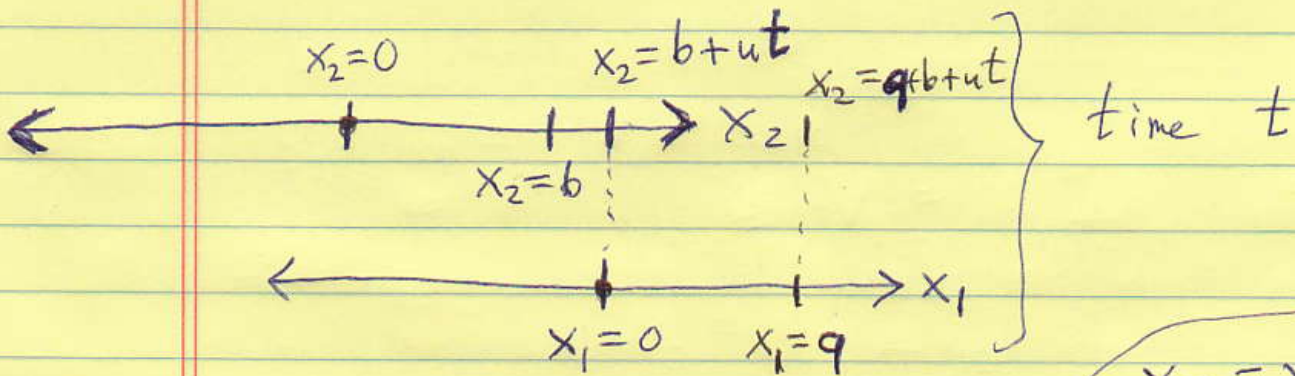 x₂=0
x₂=b+ut
x₂=q+b+ut
x₂
time t
x₂=b
x₁
x₁=0
x₁=q